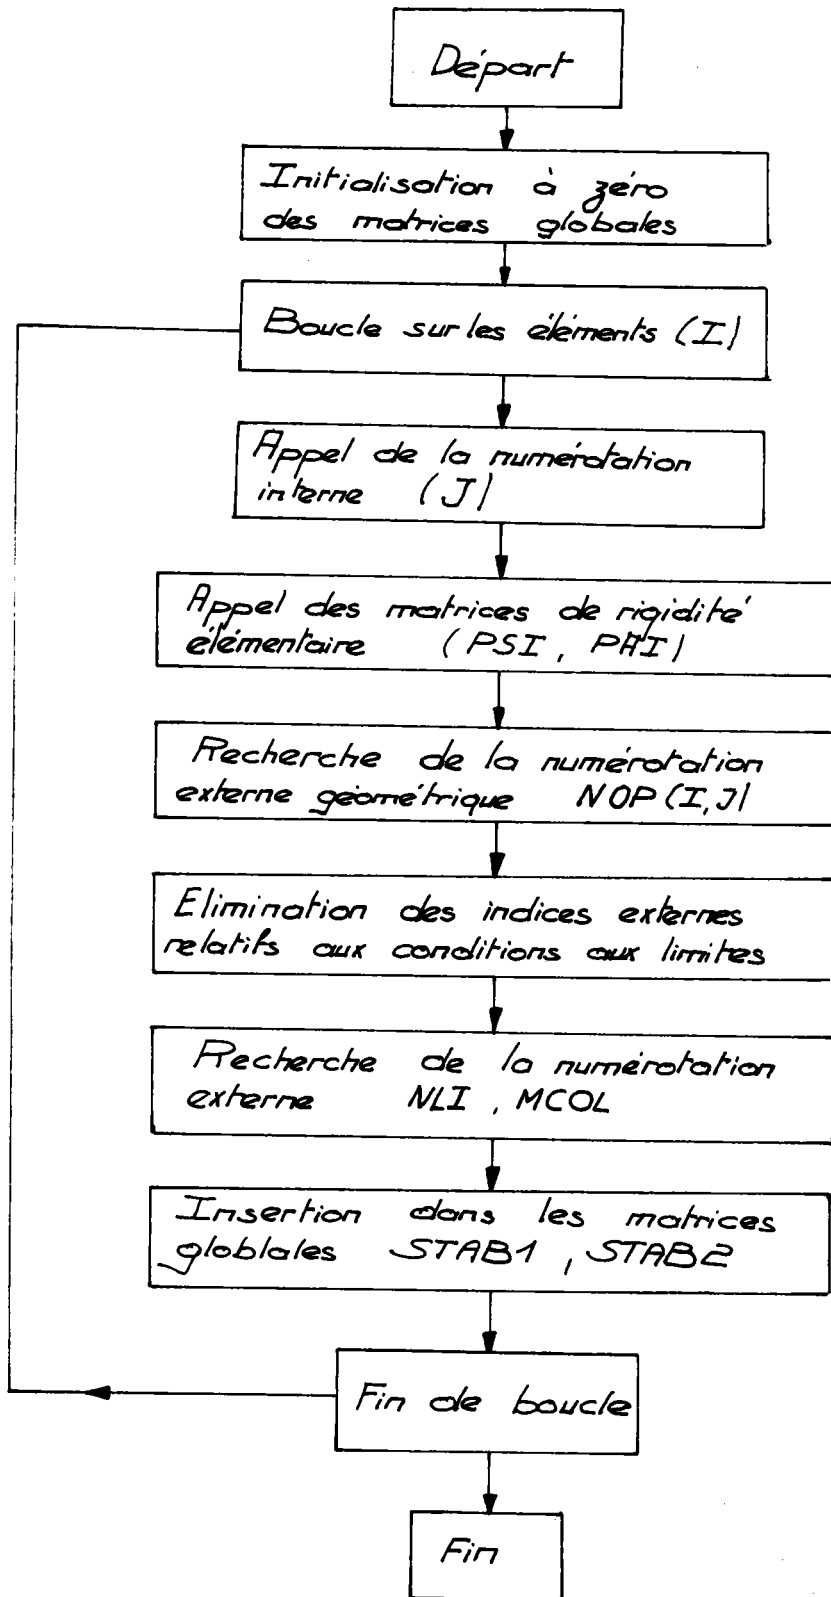 Départ
Initialisation à zéro
des matrices globales
Boucle sur les éléments (I)
Appel de la numérotation
interne (J)
Appel des matrices de rigidité
élémentaire (PSI, PAI)
Recherche de la numérotation
externe géométrique NOP(I,J)
Elimination des indices externes
relatifs aux conditions aux limites
Recherche de la numérotation
externe NLI, MCOL
Insertion dans les matrices
globlales STAB1, STAB2
Fin de boucle
Fin